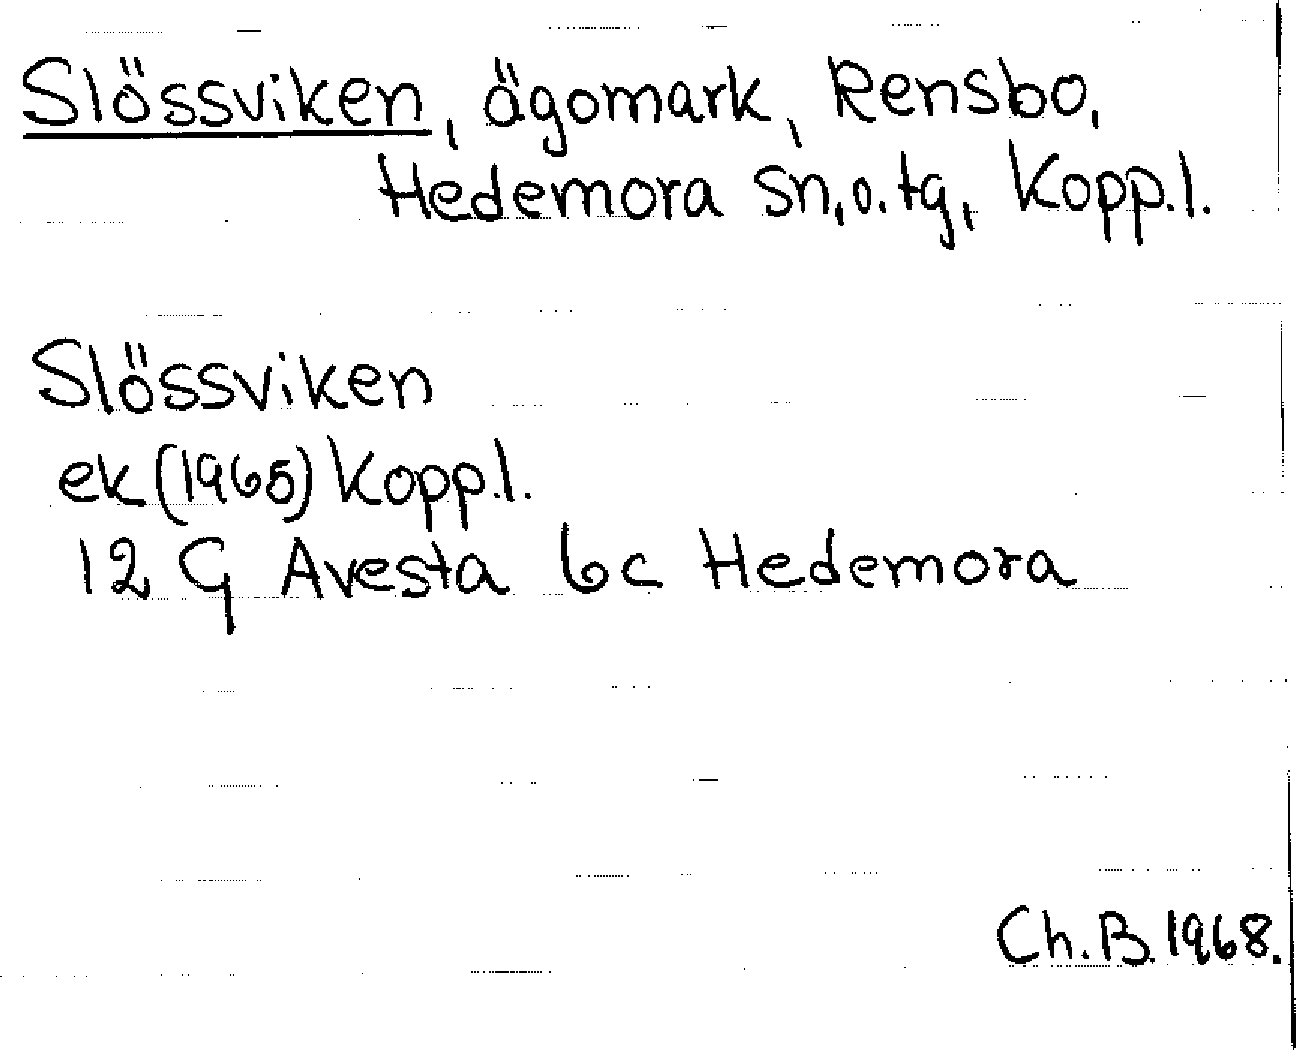 Slössviken, ägomark, Rensbo,
Hedemora sn, o. tg, Kopp. l.
Slössviken
ek (1965) Kopp. l.
12 G Avesta 6c Hedemora
Ch. B. 1968.